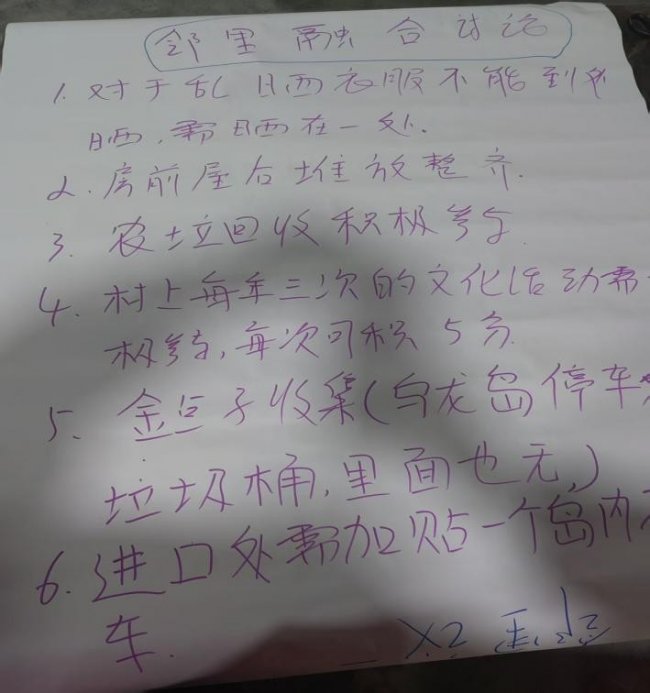 邻里融合讨论
1. 对于乱晒衣服不能到处
晒,需晒在一处.
2. 房前屋后堆放整齐.
3. 农垃回收积极参与
4. 村上每年三次的文化活动需
极参与,每次可积5分.
5. 金点子收集(白龙岛停车
垃圾桶,里面也无,)
6. 进口处需加贴一个岛内
车.